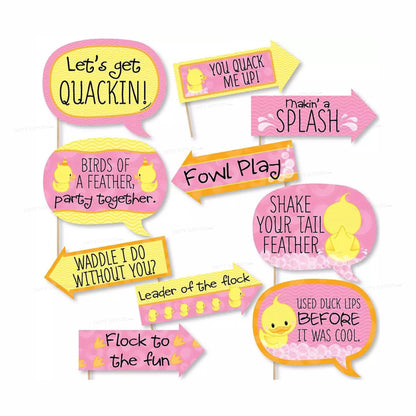 Let's get
QUACKIN!
YOU QUACK
ME UP!
Makin' a
SPLASH
BIRDS OF
A FEATHER,
party together.
Fowl Play
SHAKE
YOUR TAIL
FEATHER
WADDLE I DO
WITHOUT YOU?
Leader of the flock
USED DUCK LIPS
BEFORE
IT WAS COOL.
Flock to
the fun